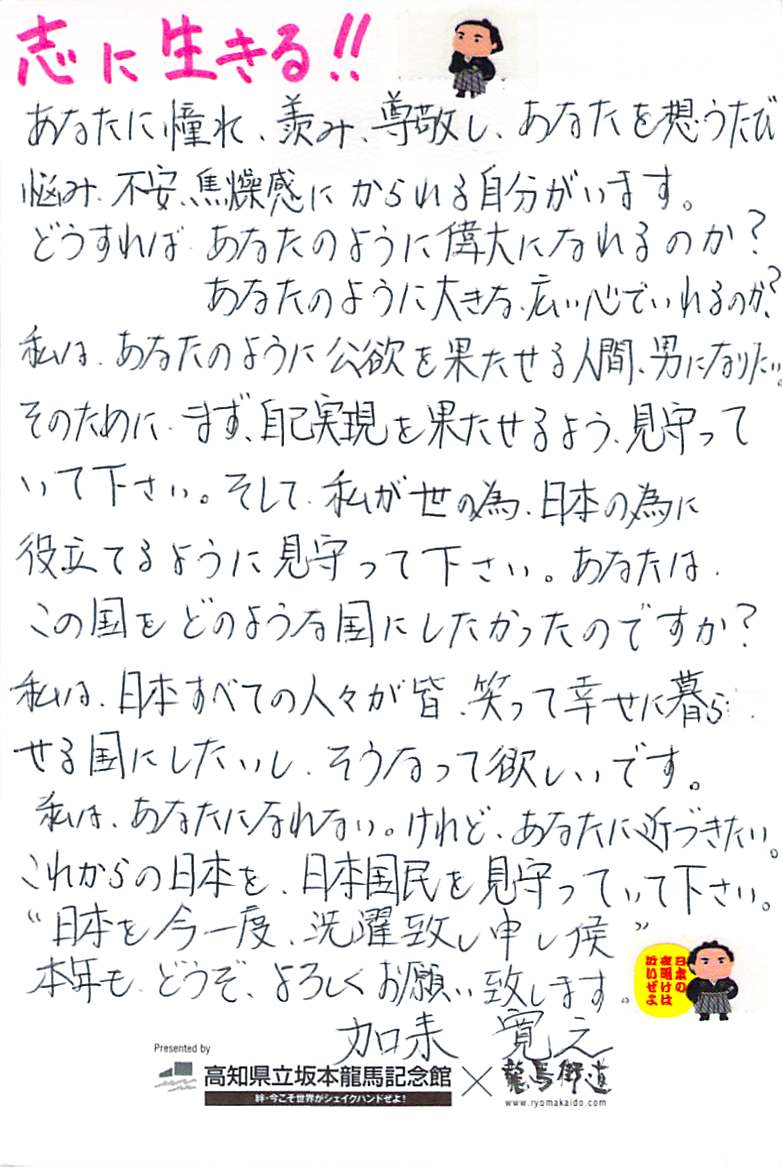 志に生きる!!
あなたに憧れ、羨み、尊敬し、あなたを想うたび
悩み、不安、焦燥感にかられる自分がいます。
どうすれば、あなたのように偉大になれるのか?
あなたのように大きな、広い心でいれるのか?
私は、あなたのように公欲を果たせる人間、男になりたい。
そのために、まず、自己実現を果たせるよう、見守って
いて下さい。そして、私が世の為、日本の為に
役立てるように見守って下さい。あなたは、
この国をどのような国にしたかったのですか?
私は、日本すべての人々が皆、笑って幸せに暮ら
せる国にしたいし、そうなって欲しいです。
私は、あなたになれない。けれど、あなたに近づきたい。
これからの日本を、日本国民を見守っていて下さい。
“日本を今一度、洗濯致し申し候”
本年も、どうぞ、よろしくお願い致します。
日本の
夜明けは
近いぜよ
加来 寛之
Presented by
高知県立坂本龍馬記念館 × 龍馬街道
絆・今こそ世界がシェイクハンドぜよ!
www.ryomakaido.com